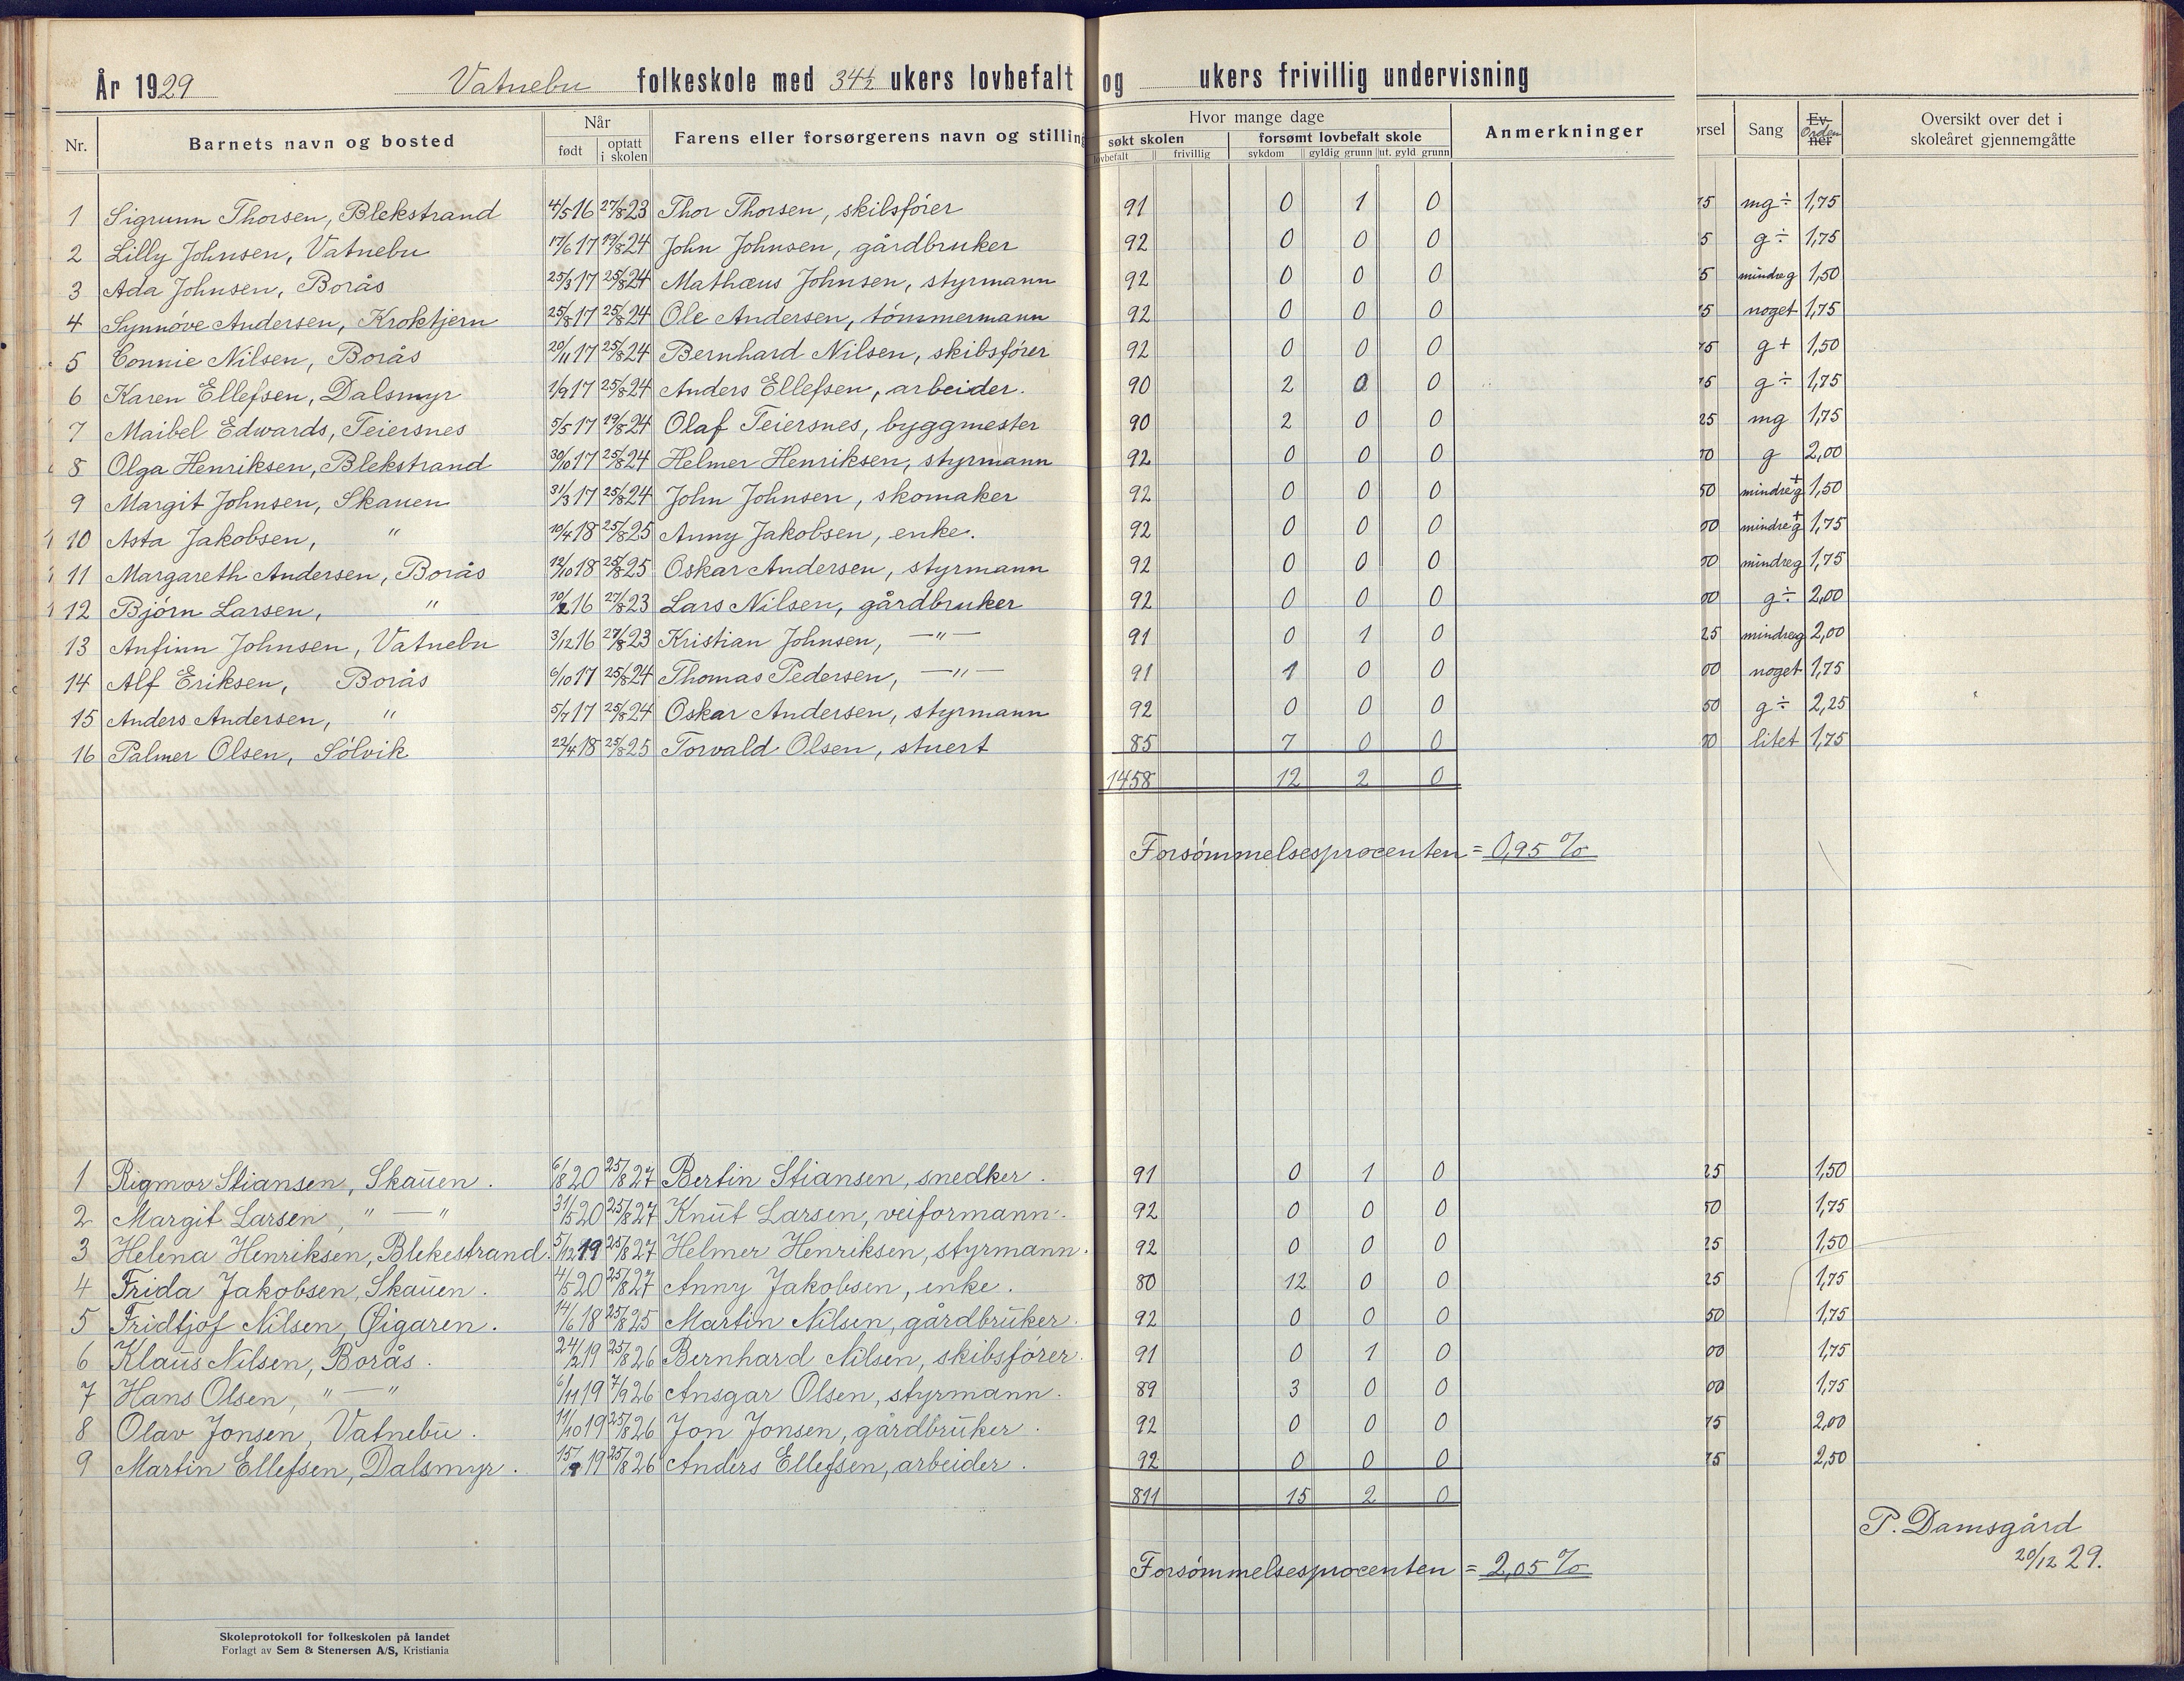 År 1929 Vatnebu folkeskole med 34½ ukers lovbefalt og ukers frivillig undervisning
Nr. Barnets navn og bosted Når født optatt i skolen Farens eller forsørgerens navn og stilling Hvor mange dage søkt skolen lovbefalt frivillig forsømt lovbefalt skole sykdom gyldig grunn ut. gyld grunn Anmerkninger Sang Ev. Orden ner Oversikt over det i skoleåret gjennemgåtte
1 Sigrunn Thorsen, Blekstrand 4/5 16 27/8 23 Thor Thorsen, skibsfører 91 0 1 0 mg÷ 1,75
2 Lilly Johnsen, Vatnebu 17/6 17 19/8 24 John Johnsen, gårdbruker 92 0 0 0 g÷ 1,75
3 Ada Johnsen, Borås 25/3 17 25/8 24 Mathæus Johnsen, styrmann 92 0 0 0 mindre g 1,50
4 Synnøve Andersen, Kroktjern 25/8 17 25/8 24 Ole Andersen, tømmermann 92 0 0 0 noget 1,75
5 Connie Nilsen, Borås 20/11 17 25/8 24 Bernhard Nilsen, skibsfører 92 0 0 0 g+ 1,50
6 Karen Ellefsen, Dalsmyr 1/9 17 25/8 24 Anders Ellefsen, arbeider. 90 2 0 0 g÷ 1,75
7 Maibel Edwards, Teiersnes 5/5 17 19/8 24 Olaf Teiersnes, byggmester 90 2 0 0 mg 1,75
8 Olga Henriksen, Blekstrand 30/10 17 25/8 24 Helmer Henriksen, styrmann 92 0 0 0 g 2,00
9 Margit Johnsen, Skauen 31/3 17 25/8 24 John Johnsen, skomaker 92 0 0 0 mindre g+ 1,50
10 Asta Jakobsen, " 10/4 18 25/8 25 Anny Jakobsen, enke. 92 0 0 0 mindre g+ 1,75
11 Margareth Andersen, Borås 12/10 18 25/8 25 Oskar Andersen, styrmann 92 0 0 0 mindre g 1,75
12 Bjørn Larsen, " 10/2 16 27/8 23 Lars Nilsen, gårdbruker 92 0 0 0 g÷ 2,00
13 Anfinn Johnsen, Vatnebu 3/12 16 27/8 23 Kristian Johnsen, —"— 91 0 1 0 mindre g 2,00
14 Alf Eriksen, Borås 6/10 17 25/8 24 Thomas Pedersen, —"— 91 1 0 0 noget 1,75
15 Anders Andersen, " 5/7 17 25/8 24 Oskar Andersen, styrmann 92 0 0 0 g÷ 2,25
16 Palmer Olsen, Sølvik 22/4 18 25/8 25 Torvald Olsen, stuert 85 7 0 0 litet 1,75
1458 12 2 0
Forsømmelsesprocenten = 0,95 %
1 Rigmor Stiansen, Skauen. 6/8 20 25/8 27 Bertin Stiansen, snedker. 91 0 1 0 1,50
2 Margit Larsen, "—" 31/5 20 25/8 27 Knut Larsen, veiformann. 92 0 0 0 1,75
3 Helena Henriksen, Blekestrand. 5/12 19 25/8 27 Helmer Henriksen, styrmann. 92 0 0 0 1,50
4 Frida Jakobsen, Skauen. 4/5 20 25/8 27 Anny Jakobsen, enke. 80 12 0 0 1,75
5 Fridtjof Nilsen, Øigaren. 14/6 18 25/8 25 Martin Nilsen, gårdbruker. 92 0 0 0 1,75
6 Klaus Nilsen, Borås. 24/2 19 25/8 26 Bernhard Nilsen, skibsfører. 91 0 1 0 1,75
7 Hans Olsen, "—" 6/11 19 7/9 26 Ansgar Olsen, styrmann. 89 3 0 0 1,75
8 Olav Jonsen, Vatnebu. 11/10 19 25/8 26 Jon Jonsen, gårdbruker. 92 0 0 0 2,00
9 Martin Ellefsen, Dalsmyr. 15/9 19 25/8 26 Anders Ellefsen, arbeider. 92 0 0 0 2,50
811 15 2 0
P. Damsgård
20/12 29.
Forsømmelsesprocenten = 2,05 %
Skoleprotokoll for folkeskolen på landet
Forlagt av Sem & Stenersen A/S, Kristiania